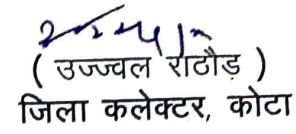 ( उज्ज्वल राठौड़ )
जिला कलेक्टर, कोटा